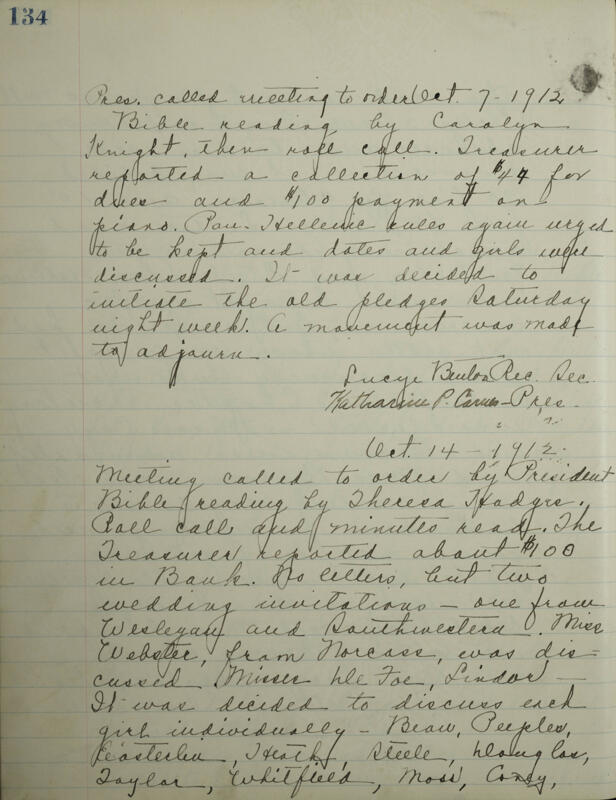 134
Pres. called meeting to order Oct. 7 - 1912
Bible reading by Carolyn
Knight, then roll call. Treasurer
reported a collection of $44 for
dues and $100 payment on
piano. Pan-Hellenic rules again urged
to be kept and dates and girls were
discussed. It was decided to
initiate the old pledges Saturday
night week. A movement was made
to adjourn.
Lucye Benton Rec. Sec.
Katharine P. Carnes - Pres.
Oct. 14 - 1912.
Meeting called to order by President
Bible reading by Theresa Hodges.
Roll call and minutes read. The
Treasurer reported about $100
in Bank. No letters, but two
wedding invitations - one from
Wesleyan and Southwestern. Miss
Webster, from Norcoss, was dis-
cussed. Misses De Foe, Lindor -
It was decided to discuss each
girl individually - Beaw, Peeples,
Heath, Steele, Douglas,
Taylor, Whitfield, Moss,